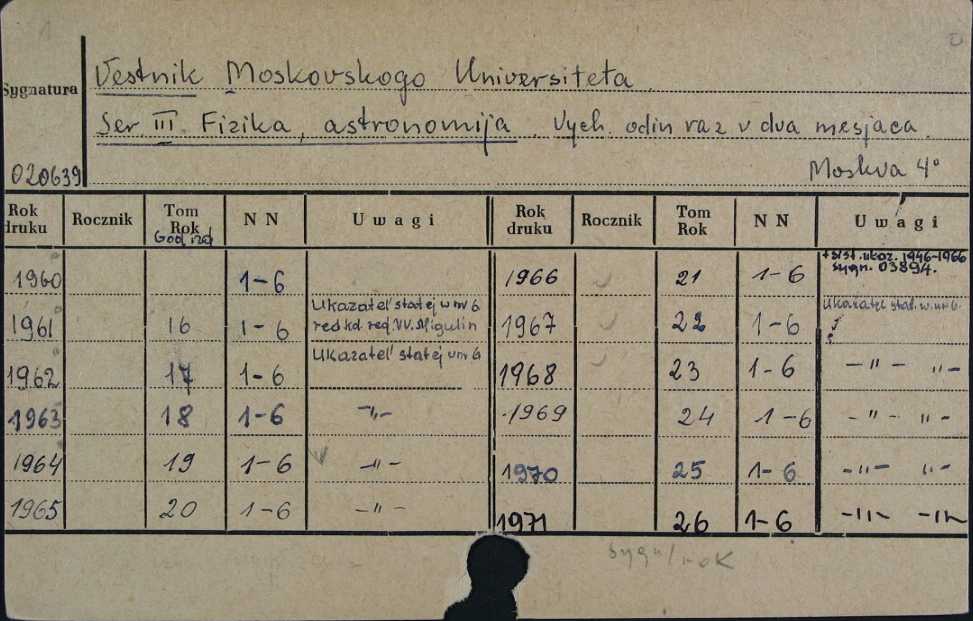 Vestnik Moskovskogo Universiteta
Sygnatura
Ser. III. Fizika, astronomija. Vych. odin raz v dva mesjaca.
020639
Moskva 4°
Rok druku Rocznik Tom Rok God izd N N Uwagi Rok druku Rocznik Tom Rok N N Uwagi
1960 1-6 1966 21 1-6 ukaz. 1946-1966 sygn. 03894.
1961 16 1-6 Ukazatel' statej w nr 6 red. V.V. Migulin 1967 22 1-6 Ukazatel' stat. w nr 6.
1962 17 1-6 Ukazatel' statej w nr 6 1968 23 1-6 -"- "-
1963 18 1-6 -"- 1969 24 1-6 -"- "-
1964 19 1-6 -"- 1970 25 1-6 -"- "-
1965 20 1-6 -"- 1971 26 1-6 -"- -"-
sygn/rok